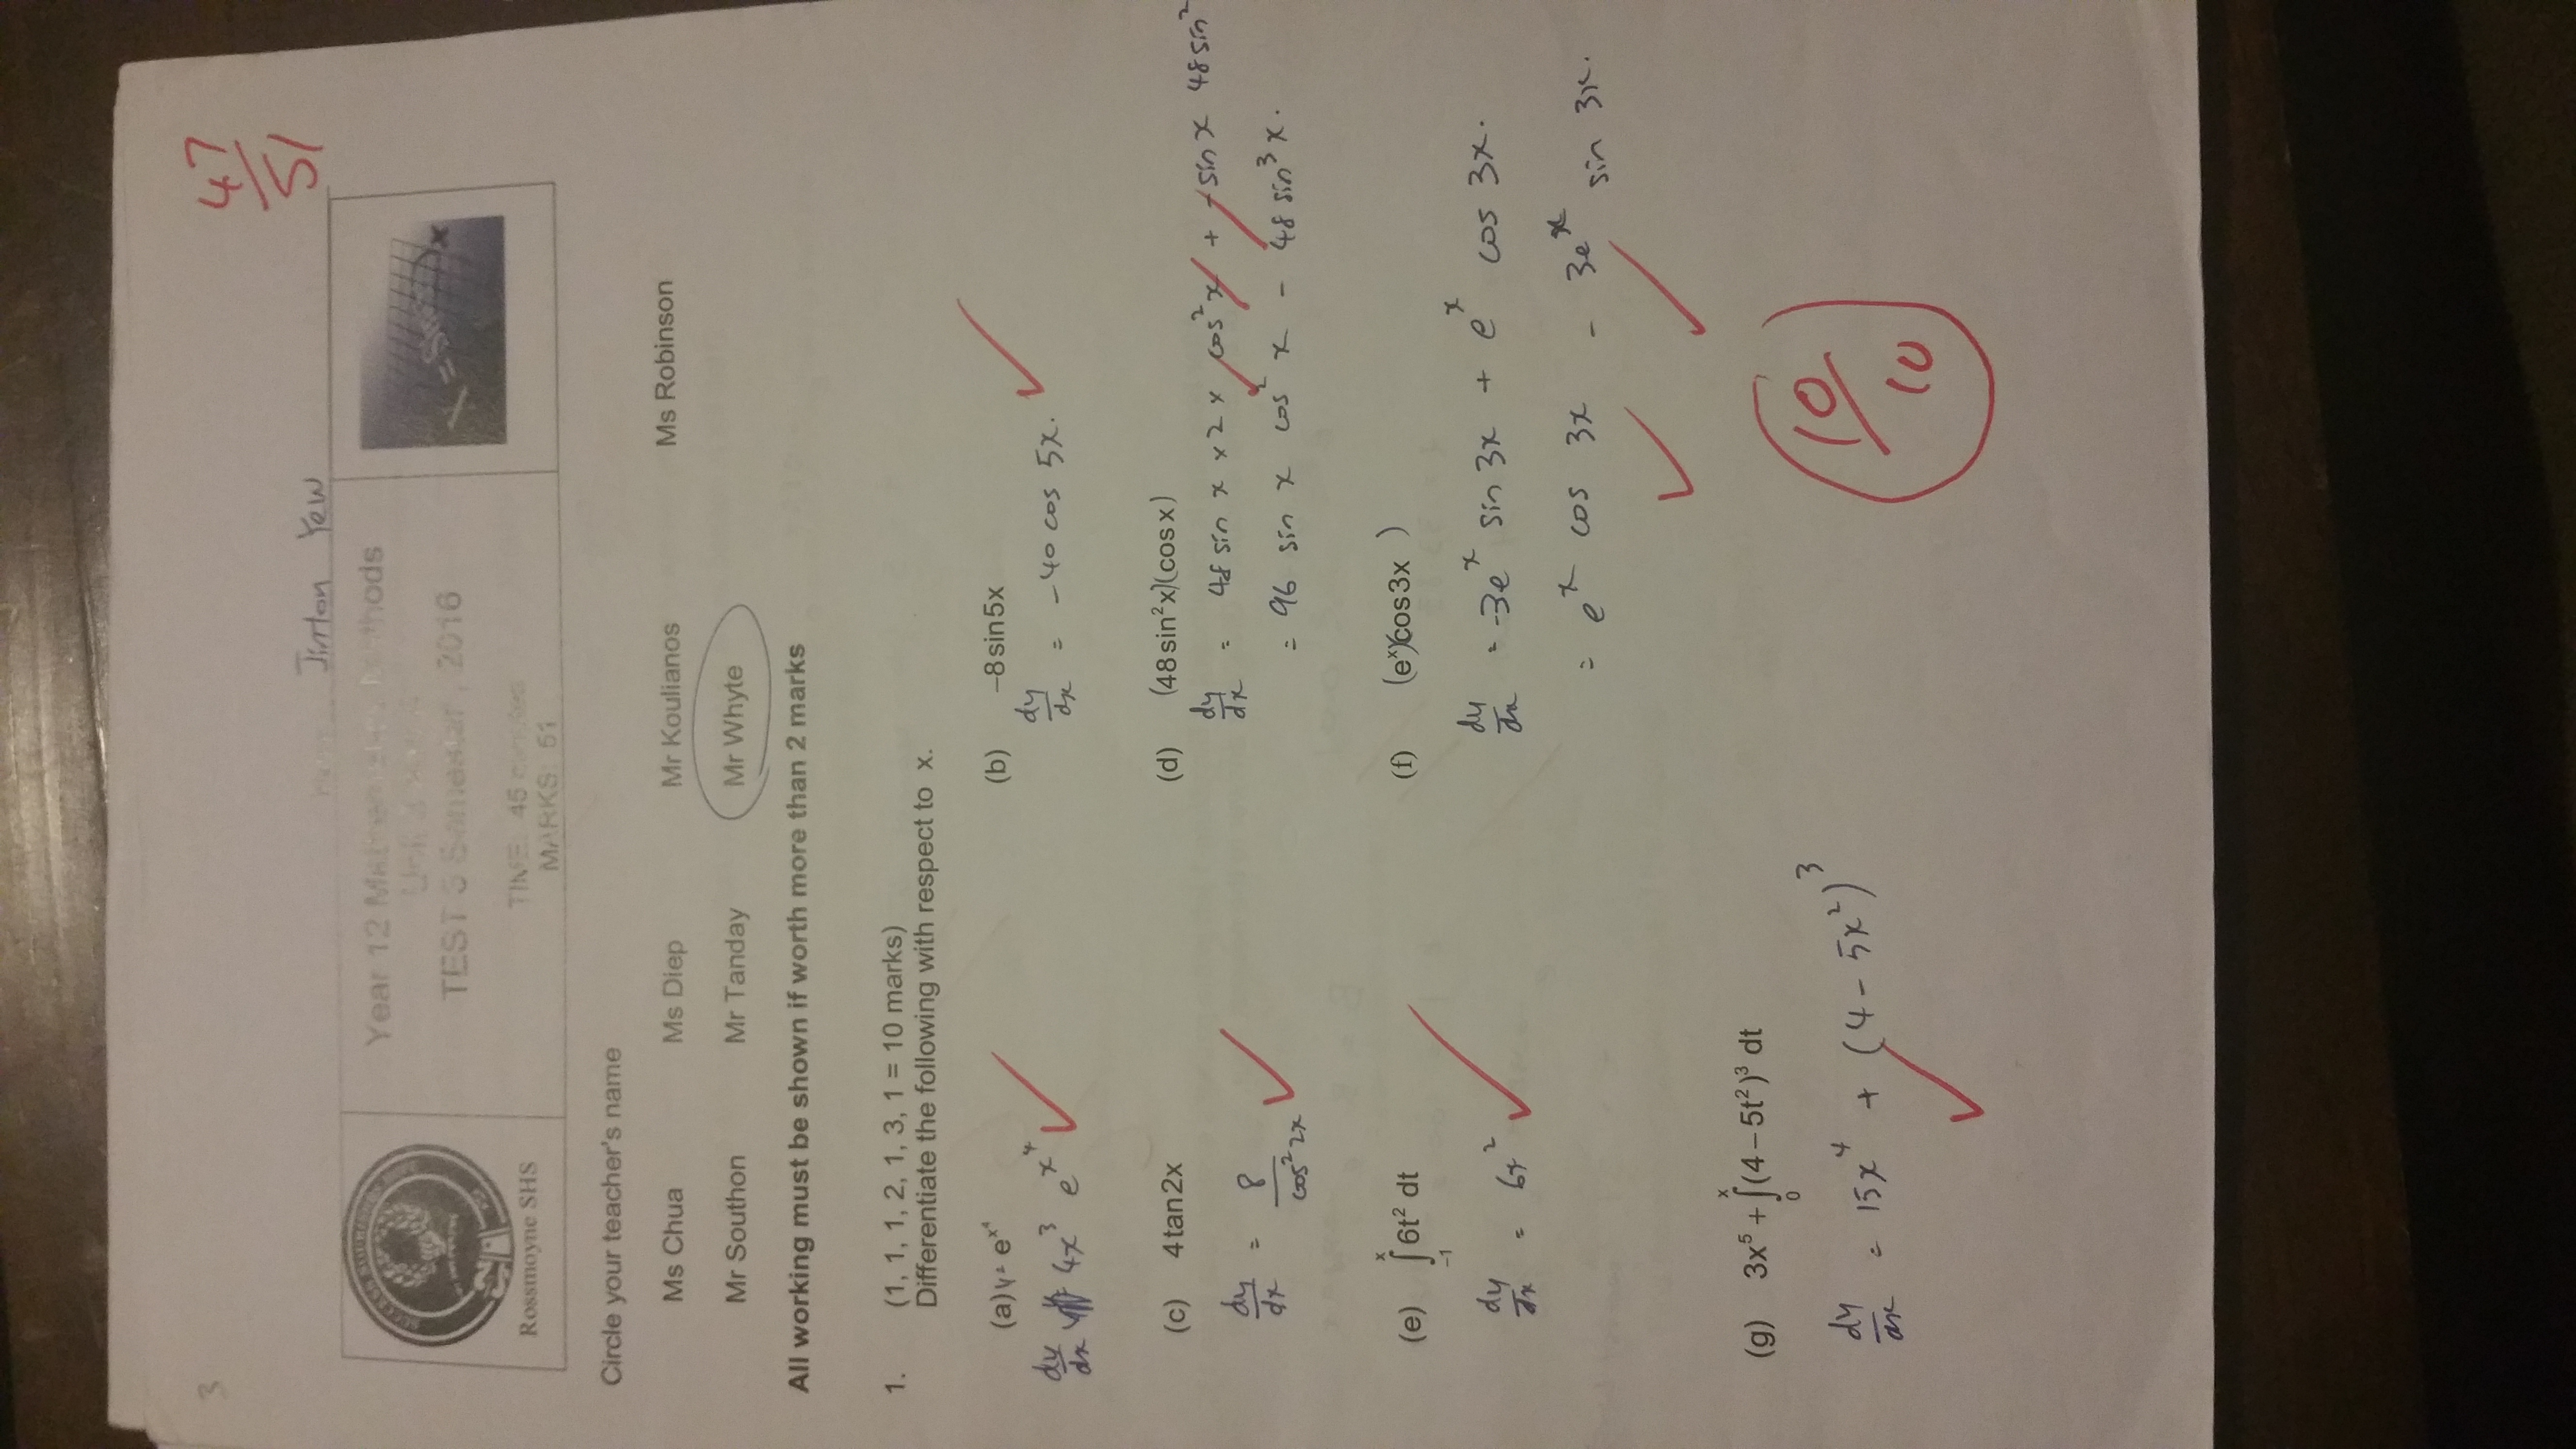 3
47
51
Jimton Yew
Year 12 Mathematics Methods
TEST 5 Semester , 2016
TIME: 45 minutes
MARKS: 51
Rossmoyne SHS
Circle your teacher's name
Ms Chua Ms Diep Mr Koulianos Ms Robinson
Mr Southon Mr Tanday Mr Whyte
All working must be shown if worth more than 2 marks
1. (1, 1, 1, 2, 1, 3, 1 = 10 marks)
Differentiate the following with respect to x.
(a) y = e^x^4
dy/dx 4x^3 e^x^4
(b) –8sin5x
dy/dx = -40 cos 5x.
(c) 4tan2x
dy/dx = 8/cos^2 2x
(d) (48sin²x)(cosx)
dy/dx = 48 sin x x 2 x cos^2 x + -sin x 48 sin^2
= 96 sin x cos^2 x - 48 sin^3 x.
(e) ∫ x –1 6t² dt
dy/dx = 6x^2
(f) (e^x)(cos3x )
dy/dx = -3e^x sin 3x + e^x cos 3x.
= e^x cos 3x - 3e^x sin 3x.
(g) 3x⁵ + ∫ x 0 (4–5t²)³ dt
dy/dx = 15x^4 + (4 - 5x^2)^3
10
10